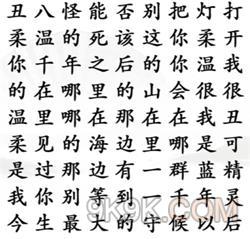 丑八怪能否别把灯打
柔温的死该这你柔开
你千年之后的你温我
的在哪里的山会很很
温里哪那在在在我丑
柔见的海边里哪是可
是过那边有一群蓝精
我你别等到一千年灵
今生最大的守候以后
9K9K.COM